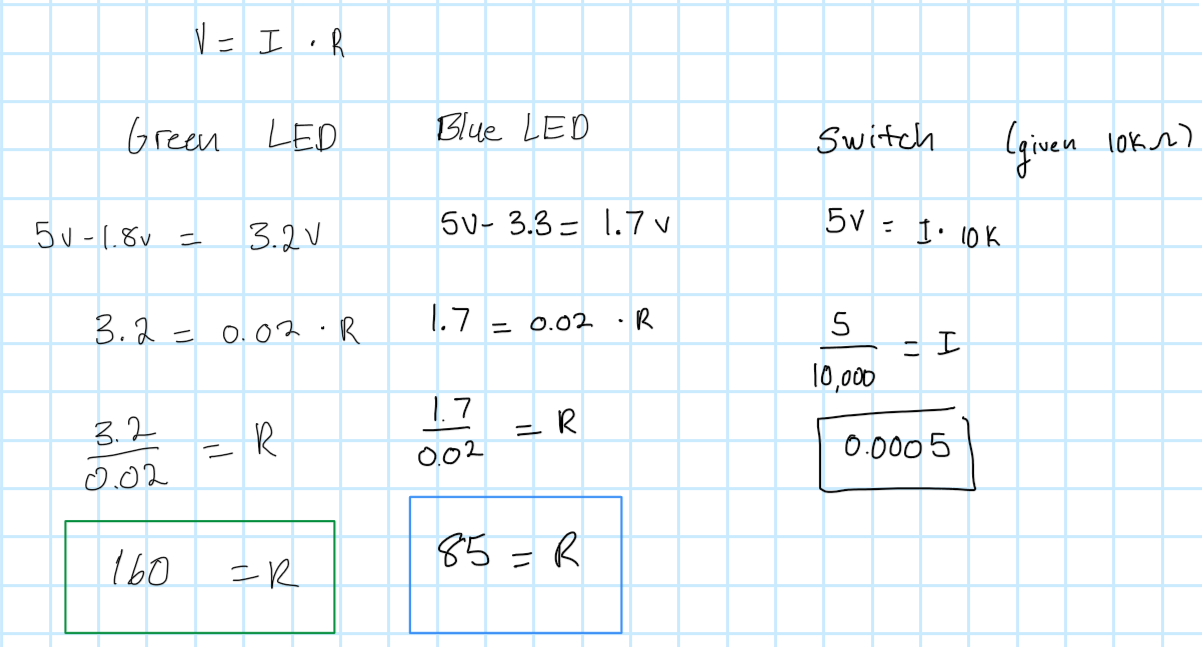 V = I · R
Green LED
5v - 1.8v = 3.2V
3.2 = 0.02 · R
3.2 / 0.02 = R
160 = R
Blue LED
5v - 3.3 = 1.7 v
1.7 = 0.02 · R
1.7 / 0.02 = R
85 = R
Switch (given 10K Ω)
5V = I · 10K
5 / 10,000 = I
0.0005